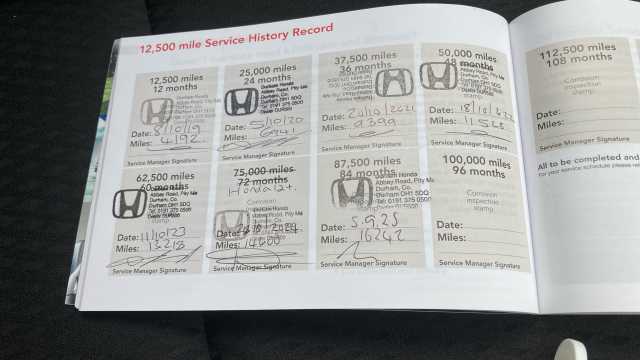 12,500 mile Service History Record
12,500 miles
12 months
Durham Honda
Abbey Road, Pity Me
Durham, Co.
Durham DH1 5DQ
Tel: 0191 375 0500
Date: 8/10/19
Miles: 4192
Service Manager Signature
25,000 miles
24 months
Durham Honda
Abbey Road, Pity Me
Durham, Co.
Durham DH1 5DQ
Tel: 0191 375 0500
Date: 5/10/20
Miles: 6941
Service Manager Signature
37,500 miles
36 months
Date: 20/10/2021
Miles: 9399
Service Manager Signature
50,000 miles
48 months
Durham Honda
Abbey Road, Pity Me
Durham, Co.
Durham DH1 5DQ
Tel: 0191 375 0500
Date: 18/10/22
Miles: 11528
Service Manager Signature
62,500 miles
60 months
Abbey Road, Pity Me
Durham, Co.
Durham DH1 5DQ
Tel: 0191 375 0500
stamp
Date: 11/10/23
Miles: 13218
Service Manager Signature
75,000 miles
72 months
Corrosion
Durham Honda
Abbey Road, Pity Me
Durham, Co.
Durham DH1 5DQ
Tel: 0191 375 0500
Date:
Miles: 14600
Service Manager Signature
87,500 miles
84 months
Durham Honda
Abbey Road, Pity Me
Durham, Co.
Durham DH1 5DQ
Tel: 0191 375 0500
Date: 5.9.25
Miles: 16242
Service Manager Signature
100,000 miles
96 months
Corrosion
inspection
stamp
Date:
Miles:
Service Manager Signature
112,500 miles
108 months
Corrosion
inspection
stamp
Date:
Miles:
Service Manager Signature
All to be completed and
for your service schedule please re